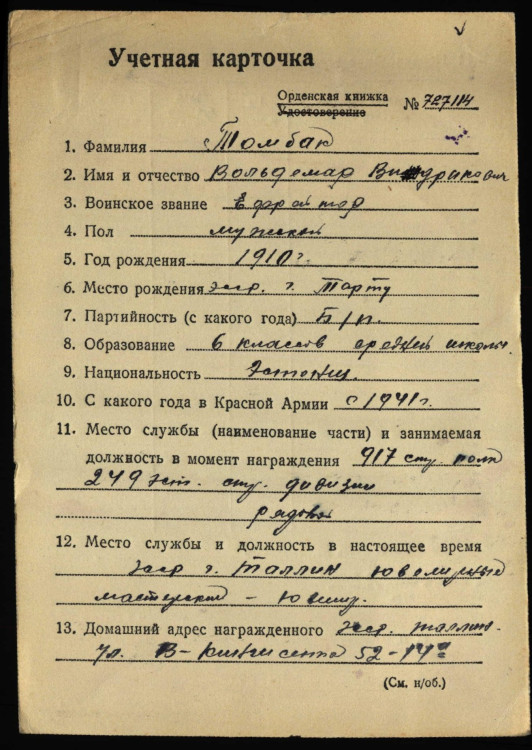 Учетная карточка
Орденская книжка
Удостоверение № 727114
1. Фамилия Томбак
2. Имя и отчество Вольдемар
3. Воинское звание Ефрейтор
4. Пол мужской
5. Год рождения 1910 г.
6. Место рождения эсср. г. Тарту
7. Партийность (с какого года) Б/п.
8. Образование 6 классов средней школы.
9. Национальность Эстонец.
10. С какого года в Красной Армии с 1941 г.
11. Место службы (наименование части) и занимаемая
должность в момент награждения 917 стр. полк
249 эст. стр. дивизии
рядовой
12. Место службы и должность в настоящее время
эсср г. Таллин ювелирные
мастерской -
13. Домашний адрес награжденного эсср. таллин.
ул. В- Кингисеппа 52-14
(См. н/об.)